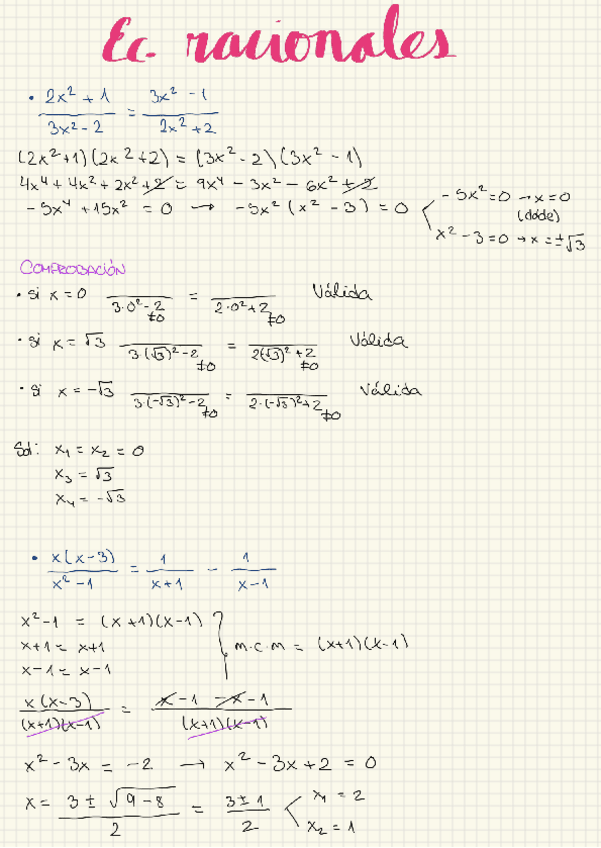 Ec. racionales
• (2x² + 1)/(3x² - 2) = (3x² - 1)/(2x² + 2)
(2x²+1)(2x²+2) = (3x²-2)(3x²-1)
4x⁴ + 4x² + 2x² + 2 = 9x⁴ - 3x² - 6x² + 2
-5x⁴ + 15x² = 0 → -5x² (x² - 3) = 0
-5x² = 0 → x = 0
(doble)
x² - 3 = 0 → x = ±√3
COMPROBACIÓN
• si x = 0 /(3·0² - 2 ≠0) = /(2·0² + 2 ≠0) Válida
• si x = √3 /(3·(√3)² - 2 ≠0) = /(2(√3)² + 2 ≠0) Válida
• si x = -√3 /(3·(-√3)² - 2 ≠0) = /(2·(-√3)² + 2 ≠0) Válida
Sol: x₁ = x₂ = 0
x₃ = √3
x₄ = -√3
• x(x-3)/(x² - 1) = 1/(x+1) - 1/(x-1)
x² - 1 = (x+1)(x-1)
x+1 = x+1
m.c.m = (x+1)(x-1)
x-1 = x-1
x(x-3)/((x+1)(x-1)) = (x - 1 - x - 1)/((x+1)(x-1))
x² - 3x = -2 → x² - 3x + 2 = 0
x = (3 ± √(9-8))/2 = (3 ± 1)/2
x₁ = 2
x₂ = 1